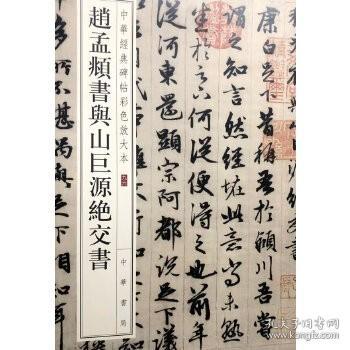 中華經典碑帖彩色放大本
趙孟頫書與山巨源絶交書
中華書局
康白足下昔稱吾於潁川吾嘗
謂之知言然經怪此意尚未熟
悉於足下何從便得之也前年
從河東還顯宗阿都說足下議
孔夫子旧书网